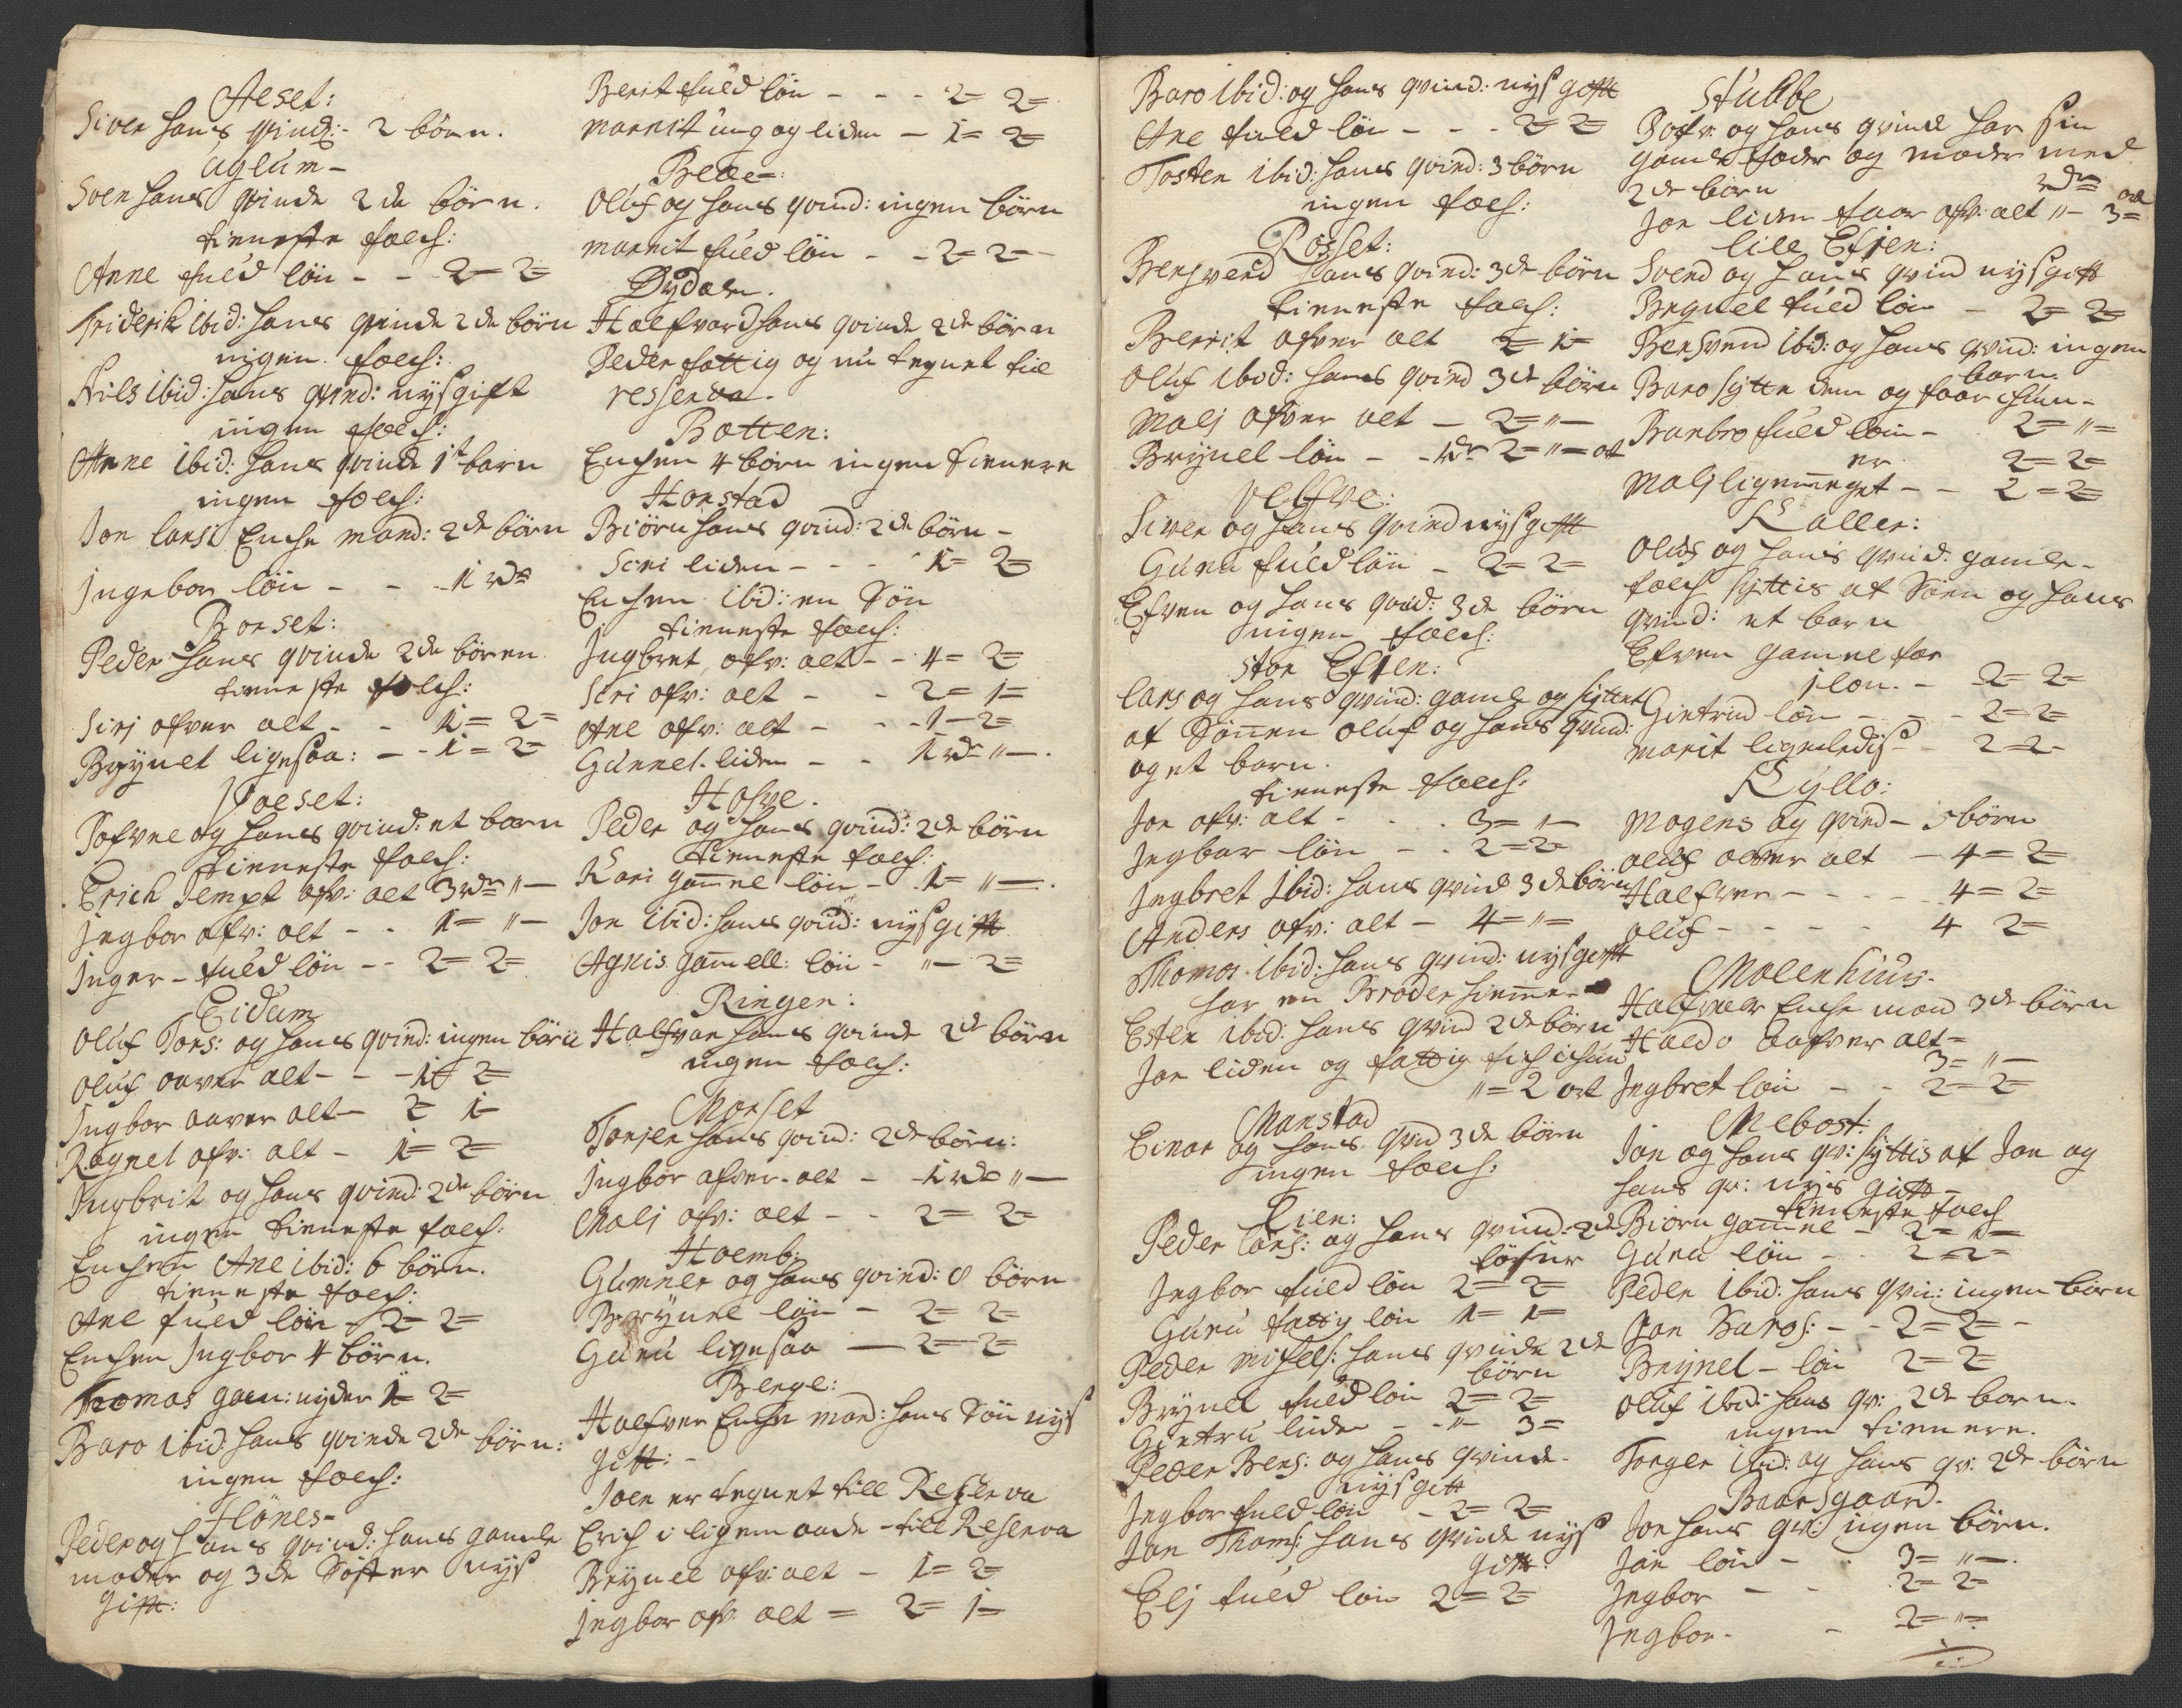 Aeset:
Siver hans qvind: 2 børn.
Uglum -
Sven hans qvinde 2de børn.
tieneste folch:
Anne fuld løn - - 2= 2=
Friderik ibid: hans qvinde 2de børn
ingen folch:
Nils ibid: hans qvind: nysgift
ingen folch:
Arne ibid: hans qvinde 1t barn
ingen folch:
Jon larsi Enche mand: 2de børn
Ingebor løn - - - 1 rdr
Borset:
Peder hans qvinde 2de børen
tieneste folch:
Siri ofver alt - - 1= 2=
Brynel ligesaa: - - 1= 2=
Tofvel og hans qvind: et barn
tieneste folch:
Erich Jempt ofv: alt 3 rdr "-
Ingbor ofv: alt - - 1= "-
Inger - fuld løn - - 2= 2=
Eidum
Oluf Tors: og hans qvind: ingen børn
Oluf over alt - - - 1= 2=
Ingbor over alt - 2= 1-
Ragnel ofv: alt - 1= 2=
Ingbrit og hans qvind: 2de børn
ingen tieneste folch:
Enchen Ane ibid: 6 børn.
tieneste folch:
Ane fuld løn - 2= 2=
Enchen Ingbor 4 børn.
Thomas gam: nyder 1= 2=
Baro ibid: hans qvinde 2de børn:
ingen folch:
Flönes-
Peder og hans qvind: hans gamle
moder og 3de Søster nys
Gift:
Berit fuld løn - - - 2= 2=
Marrit ung og liden - 1= 2=
Oluf og hans qvind: ingen børn
Marrit fuld løn - - 2= 2=
Dydaln.
Halfvard hans qvinde 2de børn
Peder fattig og nu tegnet till
resserva.
Botten:
Enchen 4 børn ingen tienere
Horstad
Biörn hans qvind: 2de børn -
Siri liden - - - 1= 2=
Enchen ibid: en Søn
tieneste folch:
Ingbret ofv: alt - - 4= 2=
Siri ofv: alt - - 2= 1=
Ane ofv: alt - - - 1= 2=
Gunnel liden - - 1 rdr "-.
Hofve.
Peder og hans qvind: 2de børn
tieneste folch:
Kari gammel løn - 1= "-.
Jon ibid: hans qvind: nysgift
Agnis gammell: løn - "- 2=
Ringen:
Halfvar hans qvinde 2de børn
ingen folch:
Morset
Torjer hans qvind: 2de børn:
Ingbor ofver alt - 1 rdr "-
Malj ofv: alt - - 2= 2=
Hoemb:
Gunner og hans qvind: 8 børn
Brynel løn - 2= 2=
Guru ligesaa - 2= 2=
Berge:
Halfver Enche mand: hans Søn nys
Gift: -
Joen er tegnet till Resserva
Erich i ligemaade - till Reserva
Brynel ofv: alt - 1= 2=
Ingbor ofv: alt = 2= 1-
Baro ibid: og hans qvind: nysgift
Ane fuld løn - - - 2= 2=
Tosten ibid: hans qvind: 3 børn
ingen folch:
Rosset:
Bersvend hans qvind: 3de børn
tieneste folch:
Berrit ofver alt 2= 1=
Oluf ibid: hans qvind 3de børn
Malj ofver alt - 2= "-
Brynel løn - - rdr 2= "- ort
Siver og hans qvind nysgift
Guru fuld løn - 2= 2=
Efven og hans qvind: 3de børn
ingen folch:
Stor Efien:
Lars og hans qvind: gamle og syttet
af Sønnen Oluf og hans qvind:
og et barn.
tieneste folch:
Jon ofv: alt - - - 3= "-
Ingbor løn - - 2= 2=
Ingbret ibid: hans qvind 3de børn
Anders ofv: alt - 4= "=
Thomas ibid: hans qvind: nysgift
har en Broder hiemme -
Esten ibid: hans qvind 2de børn
Jon liden og fattig fich ichun
"= 2 ort
Manstad
Einar og hans qvind 3de børn
ingen folch:
Lien:
Peder Lars: og hans qvind: 2de
Ingbor fuld løn 2= 2=
Guru fattig løn 1= 1=
Peder Michels: hans qvinde 2de
børn
Brynel fuld løn 2= 2=
Giertru liden - - "- 3=
Peder Bers: og hans qvinde -
nysgift
Ingbor fuld løn - 2= 2=
Jon Thoms: hans qvinde nys
Gift:
Elj fuld løn 2= 2=
Stubbe
Rofv: og hans qvinde har sin
gamle fader og moder med
2de børn
rdr ort
Jon liden faar ofv: alt "- 3=
lille Efien:
Svend og hans qvind nysgift
Brynel fuld løn - 2= 2=
Bersvend ibid: og hans qvind: ingen
børn.
Baro sytte dem og faar ichun -
Barbro fuld løn - 2= "=
2= 2=
Malj ligemeget - - 2= 2=
Kaller:
Oluf og hans qvind: gamle -
folch syttis af Søen og hans
qvind: et barn
Efven gammel for
løn - 2= 2=
Giertrud løn - - - 2= 2=
Marit ligeledis - - 2= 2-
Kyllo:
Mogens og qvind - 5 børn
Oluf over alt - 4= 2=
Halfver - - - - 4= 2=
Oluf - - - - 4 2=
Mollenhuus.
Halfver Enche mand 3de børn
Haldo ofver alt -
3= "-
Ingbret løn - - 2= 2=
Mebost:
Jon og hans qv: syttis af Jon og
hans qv: nys gift -
tieneste folch
Biørn gammel - 2= 1=
Guru løn - - 2= 2=
Peder ibid: hans qvin: ingen børn
Jon Baros: - - 2= 2= -
Brynel - løn 2= 2=
Oluf ibid: hans qv: 2de barn.
ingen tienere.
Torger ibid: og hans qv: 2de børn
Baarsgaard.
Jon hans qv: ingen børn.
Jon løn - - 3= "-.
Ingbor - - 2= 2=
Ingbor - - 2= "=